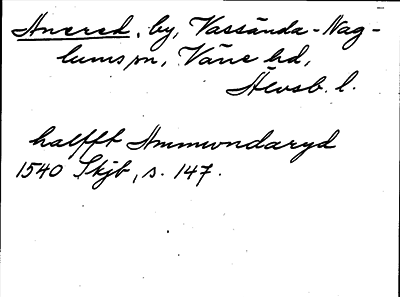 Anered, by, Vassända-Nag-
lums sn, Väne hd,
Älvsb. l.
halfft Ammundaryd
1540 Skjb, s. 147.